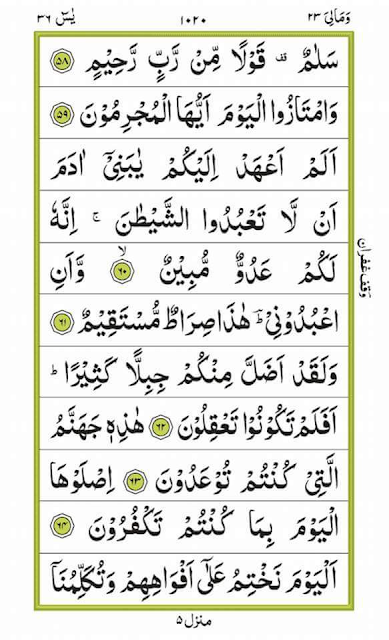 وَمَالِیَ ٢٣ ١٠٢٠ یٰسٓ ٣٦
سَلٰمٌ ۟ قَوْلًا مِّنْ رَّبٍّ رَّحِیْمٍ ﴿٥٨﴾
وَامْتَازُوا الْیَوْمَ اَیُّهَا الْمُجْرِمُوْنَ ﴿٥٩﴾
اَلَمْ اَعْهَدْ اِلَیْكُمْ یٰبَنِیْۤ اٰدَمَ
اَنْ لَّا تَعْبُدُوا الشَّیْطٰنَ ۚ اِنَّهٗ
لَكُمْ عَدُوٌّ مُّبِیْنٌ ﴿٦٠﴾ۙ وَّاَنِ
اعْبُدُوْنِیْ ؔؕ هٰذَا صِرَاطٌ مُّسْتَقِیْمٌ ﴿٦١﴾
وَلَقَدْ اَضَلَّ مِنْكُمْ جِبِلًّا كَثِیْرًا ؕ
اَفَلَمْ تَكُوْنُوْا تَعْقِلُوْنَ ﴿٦٢﴾ هٰذِهٖ جَهَنَّمُ
الَّتِیْ كُنْتُمْ تُوْعَدُوْنَ ﴿٦٣﴾ اِصْلَوْهَا
الْیَوْمَ بِمَا كُنْتُمْ تَكْفُرُوْنَ ﴿٦٤﴾
اَلْیَوْمَ نَخْتِمُ عَلٰۤی اَفْوَاهِهِمْ وَتُكَلِّمُنَاۤ
وقف غفران
منزل ٥